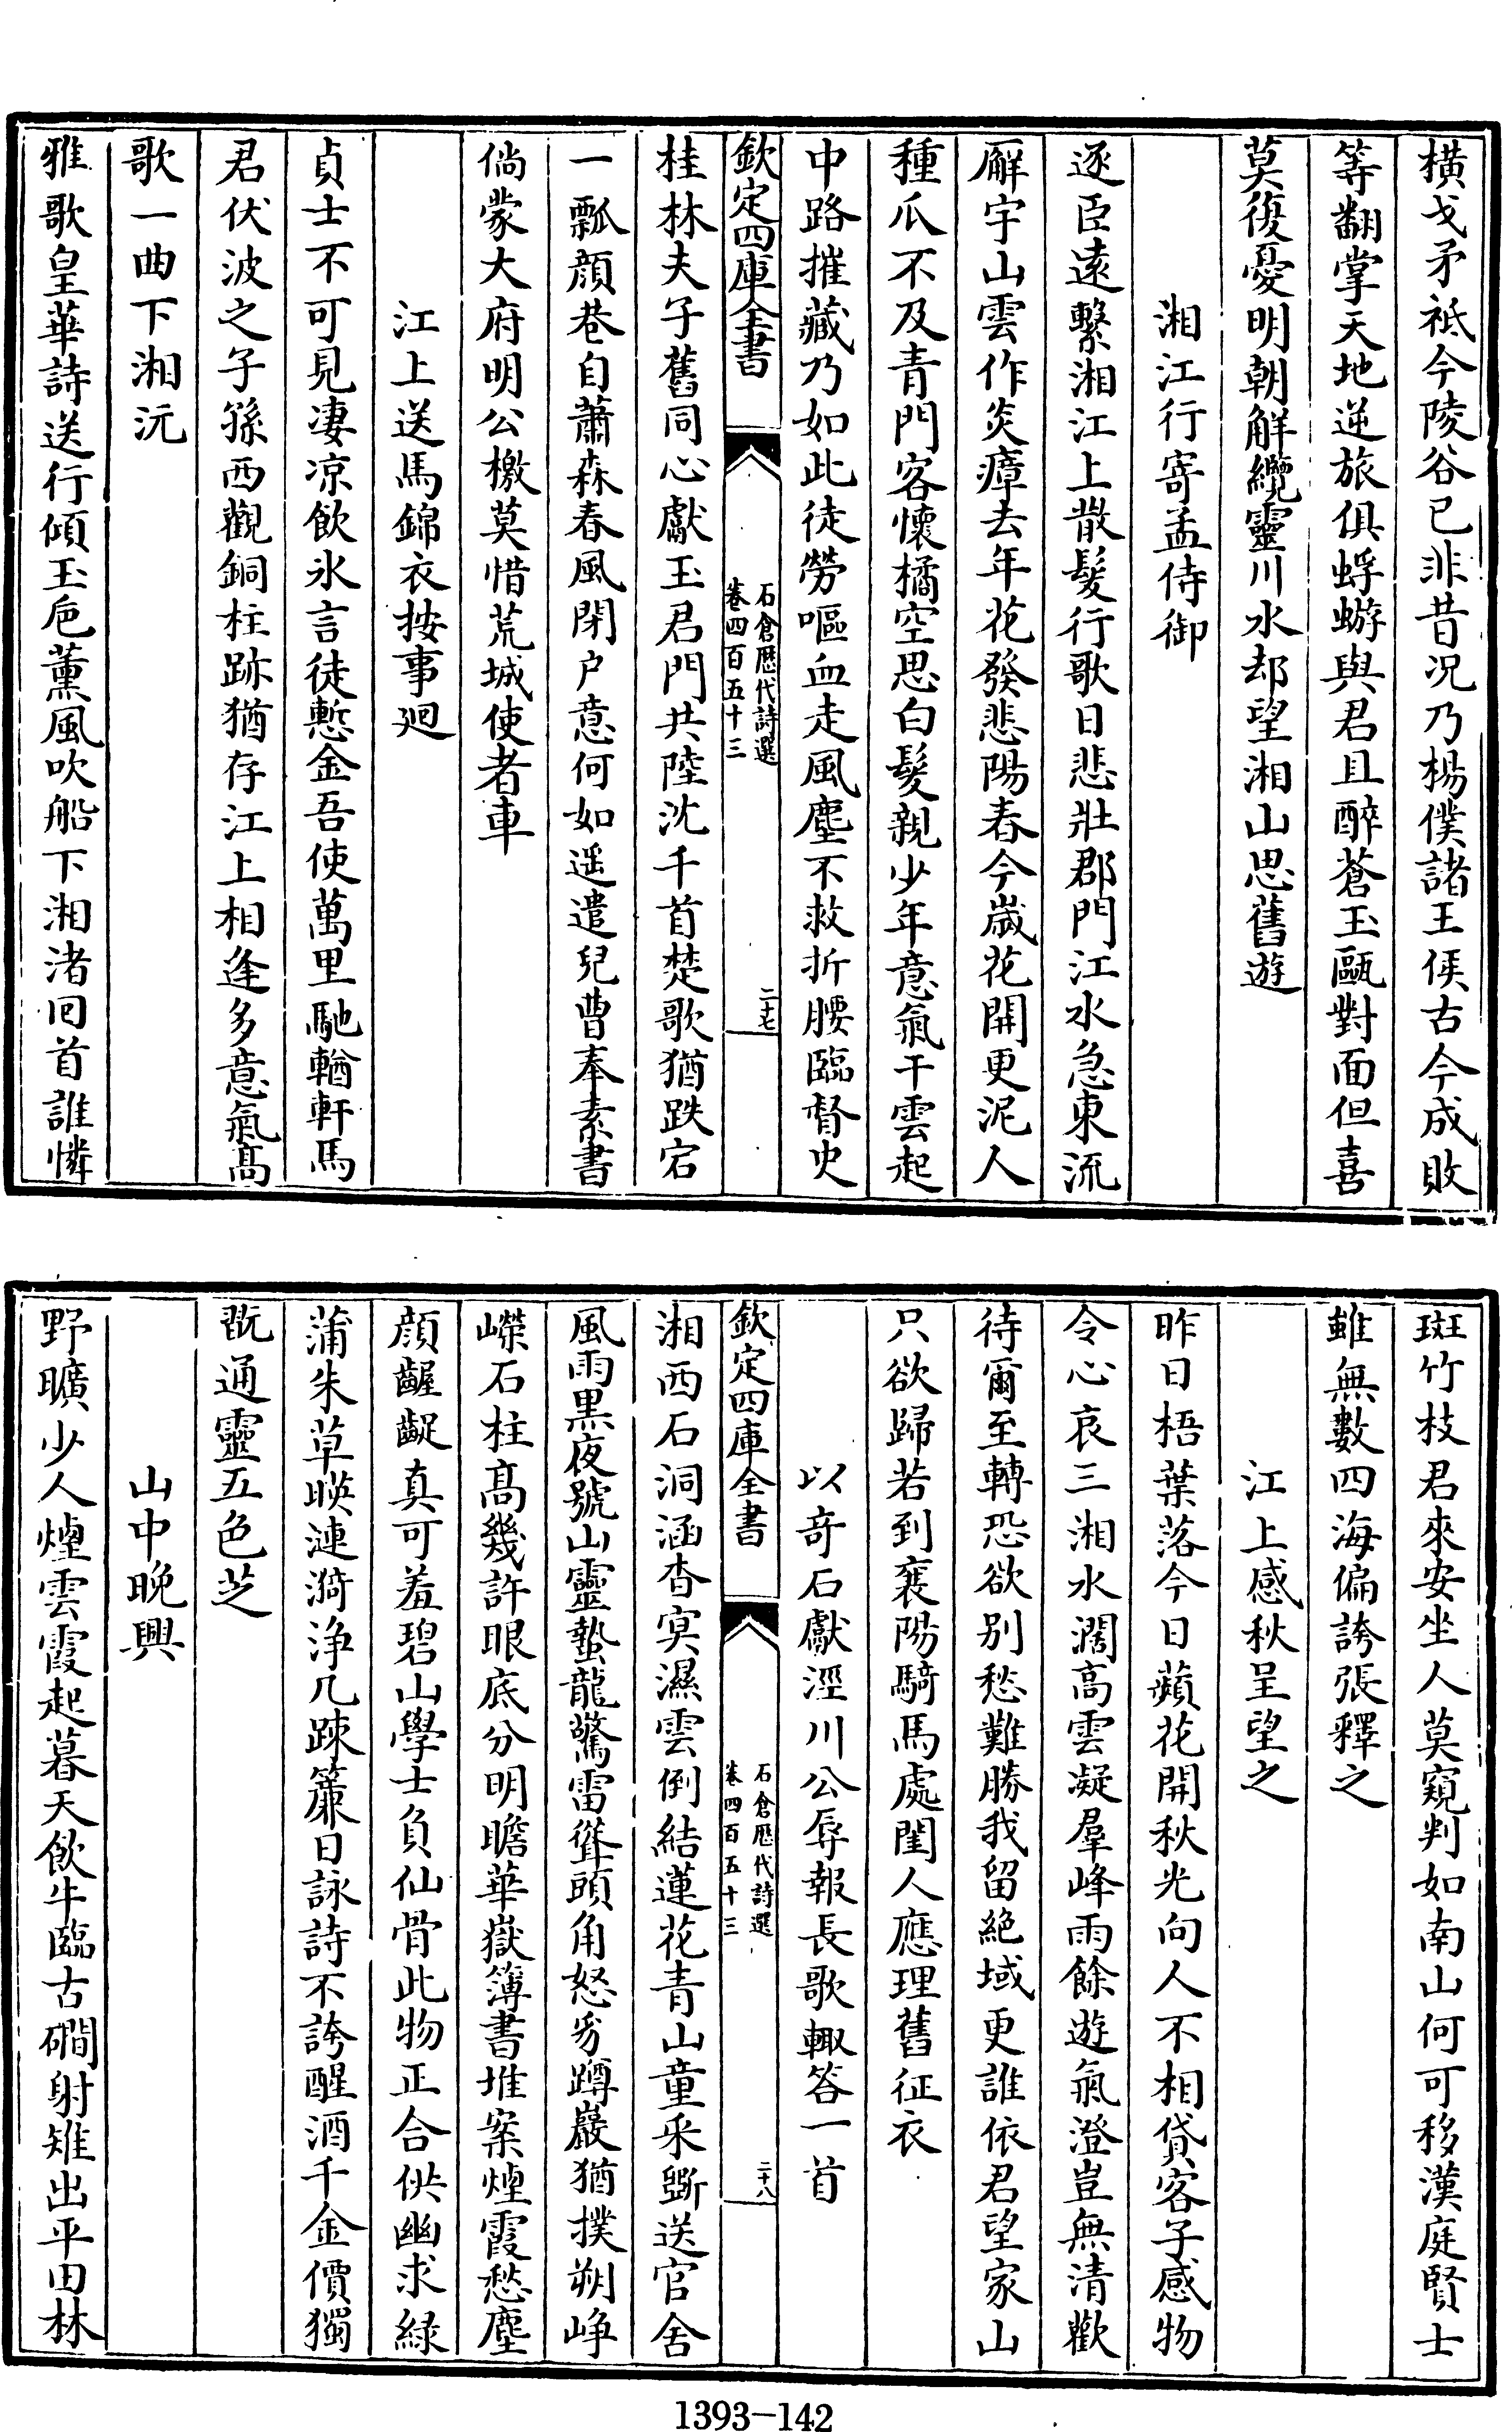 橫戈矛祇今陵谷已非昔况乃楊僕諸王侯古今成敗
等翻掌天地逆旅俱蜉蝣與君且醉蒼玉甌對面但喜
莫復憂明朝解纜靈川水却望湘山思舊遊
湘江行寄孟侍御
逐臣逺繫湘江上散髮行歌日悲壯郡門江水急東流
廨宇山雲作炎瘴去年花發悲陽春今歲花開更泥人
種瓜不及青門客懷橘空思白髮親少年意氣干雲起
中路摧藏乃如此徒勞嘔血走風塵不救折腰臨督史
欽定四庫全書
石倉歷代詩選
卷四百五十三
二十七
桂林夫子舊同心獻玉君門共陸沈千首楚歌猶跌宕
一瓢顔巷自蕭森春風閉户意何如遥遣兒曹奉素書
倘蒙大府明公檄莫惜荒城使者車
江上送馬錦衣按事廻
貞士不可見凄凉飲氷言徒慙金吾使萬里馳輶軒馬
君伏波之子孫西觀銅柱跡猶存江上相逢多意氣髙
歌一曲下湘沅
雅歌皇華詩送行傾玉巵薰風吹船下湘渚囘首誰憐
斑竹枝君來安坐人莫窺判如南山何可移漢庭賢士
雖無數四海偏誇張釋之
江上感秋呈望之
昨日梧葉落今日蘋花開秋光向人不相貸客子感物
令心哀三湘水濶高雲凝羣峰雨餘遊氣澄豈無清歡
待爾至轉恐欲别愁難勝我留絶域更誰依君望家山
只欲歸若到襄陽騎馬處閨人應理舊征衣
以竒石獻涇川公辱報長歌輙答一首
欽定四庫全書
石倉歷代詩選
卷四百五十三
二十八
湘西石洞涵杳冥濕雲倒結蓮花青山童采斲送官舍
風雨黒夜號山靈蟄龍驚雷聳頭角怒豸蹲巖猶撲朔崢
嶸石柱髙幾許眼底分明瞻華嶽簿書堆案煙霞愁塵
顔齷齪真可羞碧山學士負仙骨此物正合供幽求緑
蒲朱草暎漣漪浄几踈簾日詠詩不誇醒酒千金價獨
翫通靈五色芝
山中晚興
野曠少人煙雲霞起暮天飲牛臨古磵射雉出平田林
1393-142